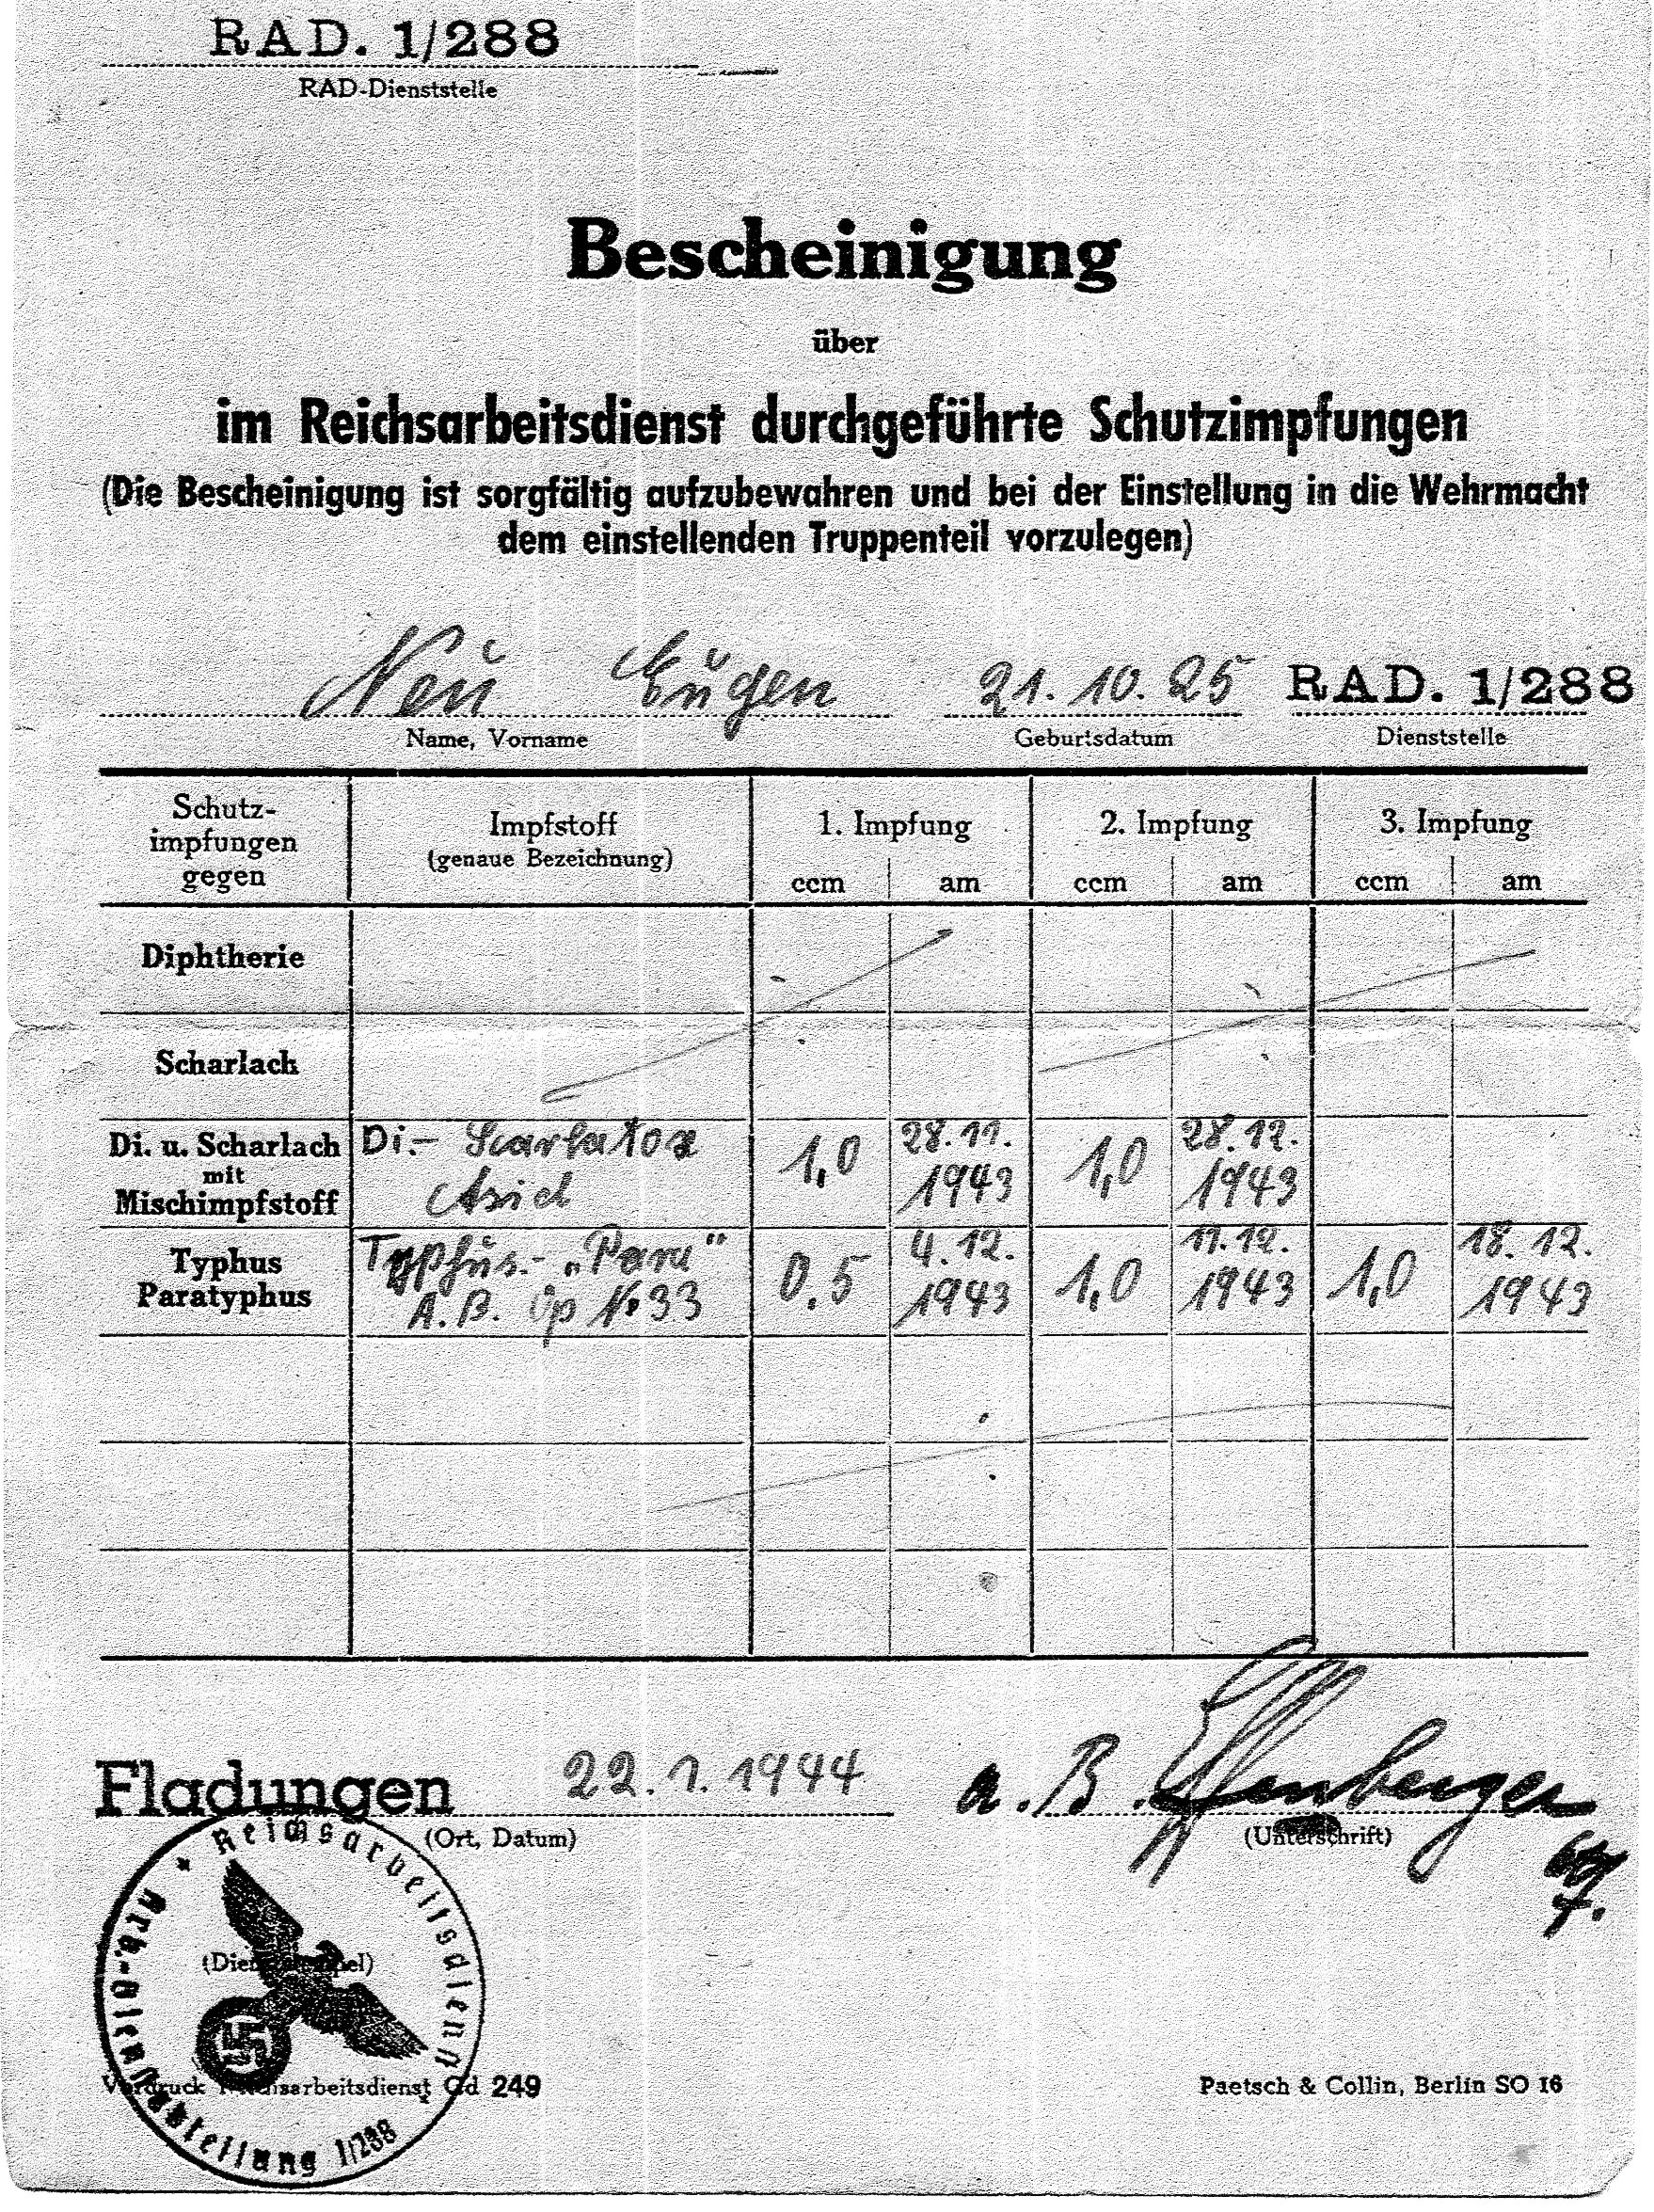 RAD. 1/288
RAD-Dienststelle
Bescheinigung
über
im Reichsarbeitsdienst durchgeführte Schutzimpfungen
(Die Bescheinigung ist sorgfältig aufzubewahren und bei der Einstellung in die Wehrmacht
dem einstellenden Truppenteil vorzulegen)
Neu Eugen 21.10.25 RAD. 1/288
Name, Vorname Geburtsdatum Dienststelle
Schutz-
impfungen
gegen
Impfstoff
(genaue Bezeichnung)
1. Impfung 2. Impfung 3. Impfung
ccm am ccm am ccm am
Diphtherie
Scharlach
Di. u. Scharlach
mit
Mischimpfstoff
Di.- Scarlatox
Asid
1,0 28.11.
1943
1,0 28.12.
1943
Typhus
Paratyphus
Typhus.- „Para"
A.B. Op No 33
0.5 4.12.
1943
1,0 11.12.
1943
1,0 18.12.
1943
Fladungen 22.1.1944 a.B. Effenberger
(Ort, Datum) (Unterschrift)
Reichsarbeitsdienst
(Dienststempel)
Vordruck Reichsarbeitsdienst Gd 249
Arb.-Dienstabteilung 1/288
Paetsch & Collin, Berlin SO 16